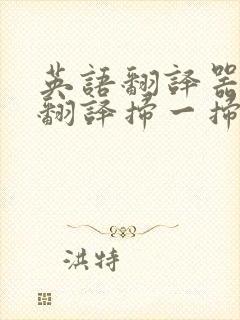 英語翻譯器
翻譯掃一掃
洪特